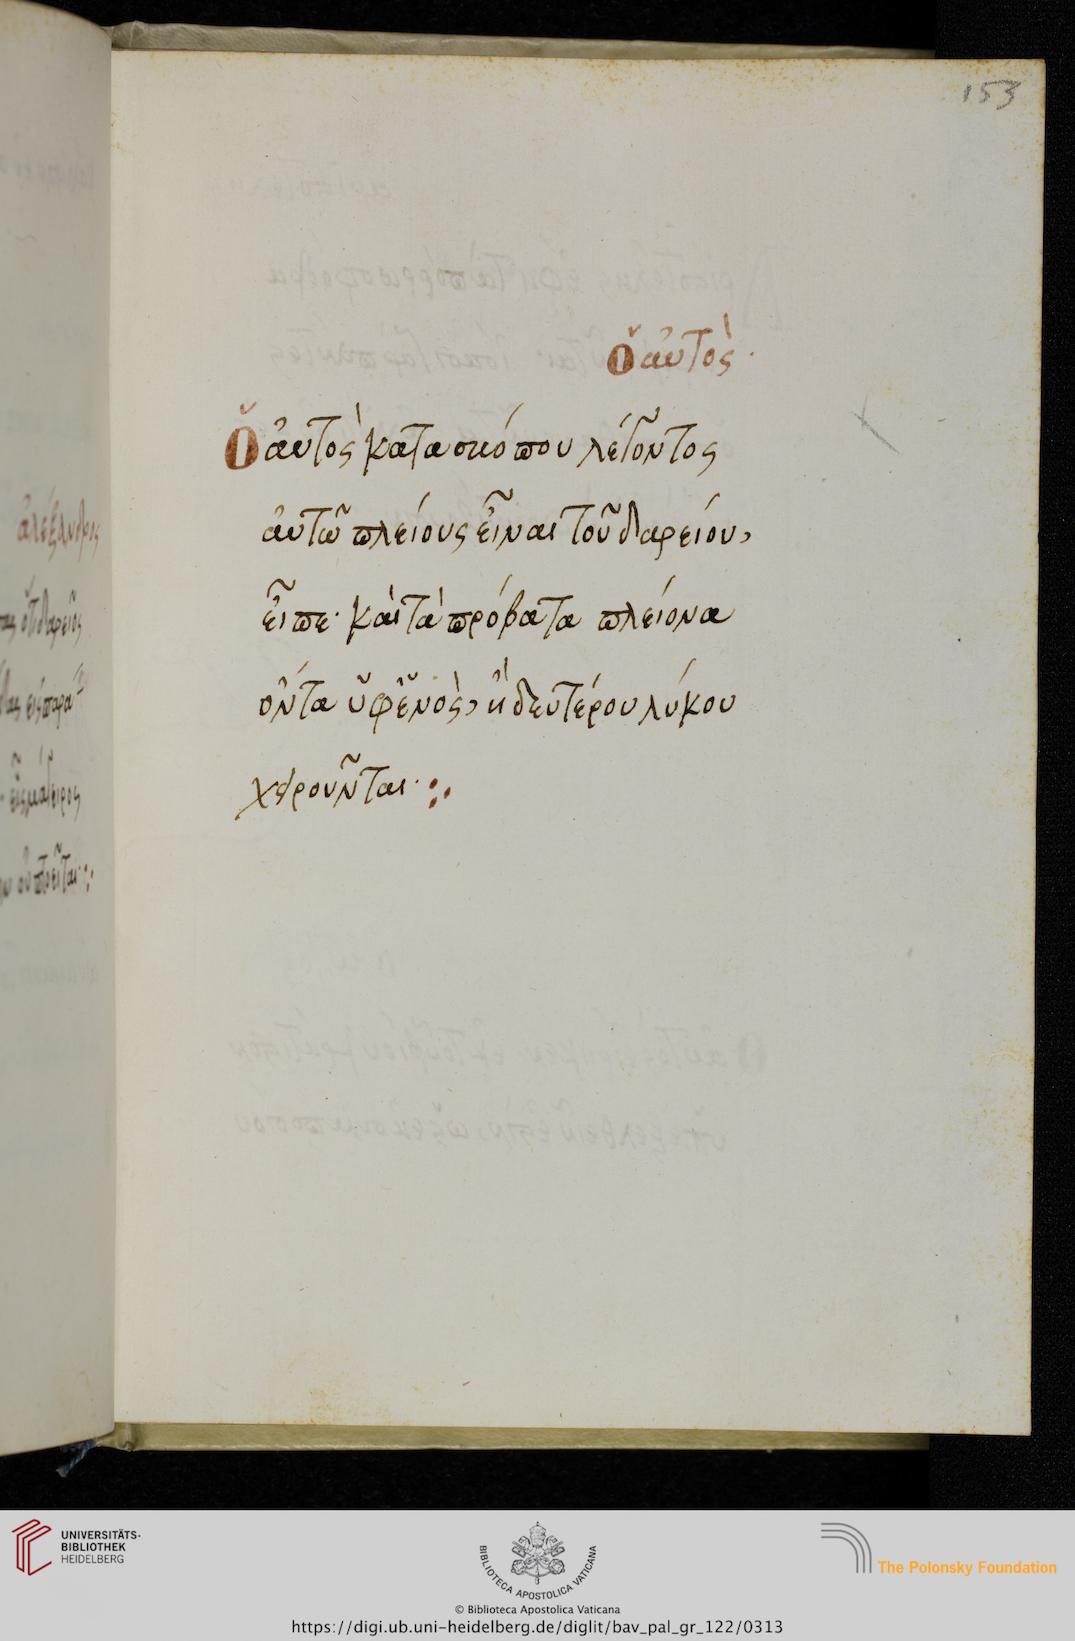 153
Ὁ αὐτὸς·
Ὁ αὐτὸς κατασκόπου λέγοντος
αὐτῶ πλείους εἶναι τοῦ δαρείου,
εἶπε· καὶ τὰ πρόβατα πλείονα
ὄντα ὑφ ἑνὸς, ἢ δευτέρου λύκου
χειροῦνται·:
ἀλέξανδρος
UNIVERSITÄTS-
BIBLIOTHEK
HEIDELBERG
BIBLIOTECA APOSTOLICA VATICANA
The Polonsky Foundation
© Biblioteca Apostolica Vaticana
https://digi.ub.uni-heidelberg.de/diglit/bav_pal_gr_122/0313